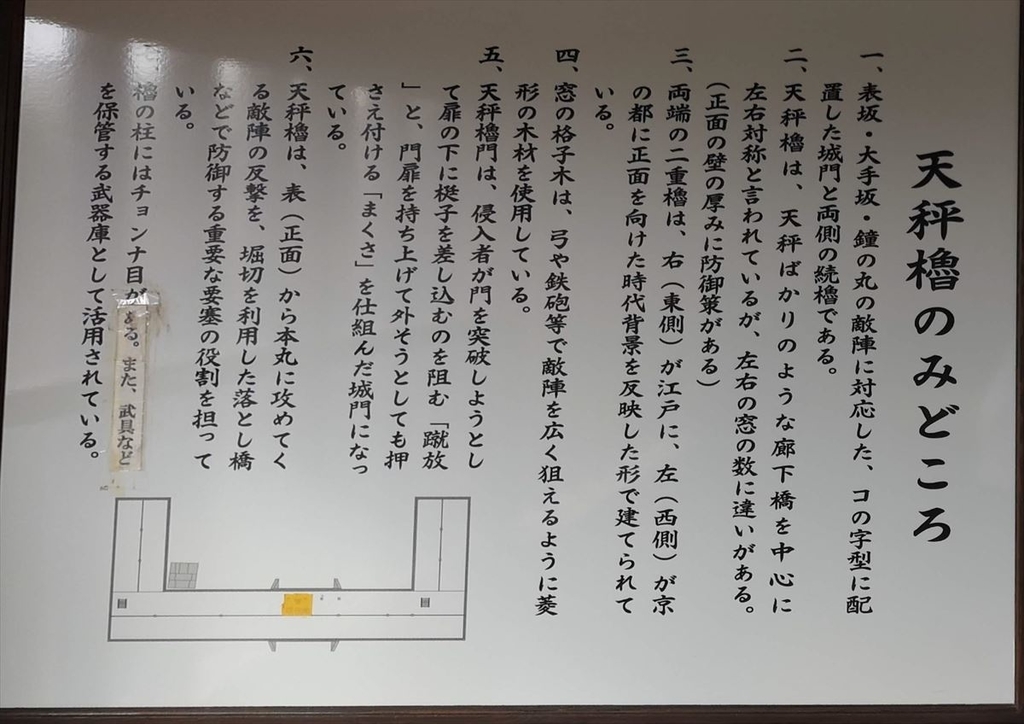 天秤櫓のみどころ
一、表坂・大手坂・鐘の丸の敵陣に対応した、コの字型に配
置した城門と両側の続櫓である。
二、天秤櫓は、天秤ばかりのような廊下橋を中心に
左右対称と言われているが、左右の窓の数に違いがある。
(正面の壁の厚みに防御策がある)
三、両端の二重櫓は、右(東側)が江戸に、左(西側)が京
の都に正面を向けた時代背景を反映した形で建てられて
いる。
四、窓の格子木は、弓や鉄砲等で敵陣を広く狙えるように菱
形の木材を使用している。
五、天秤櫓門は、侵入者が門を突破しようとし
て扉の下に梃子を差し込むのを阻む「蹴放
」と、門扉を持ち上げて外そうとしても押
さえ付ける「まくさ」を仕組んだ城門になっ
ている。
六、天秤櫓は、表(正面)から本丸に攻めてく
る敵陣の反撃を、堀切を利用した落とし橋
などで防御する重要な要塞の役割を担って
いる。
櫓の柱にはチョンナ目がある。また、武具など
を保管する武器庫として活用されている。